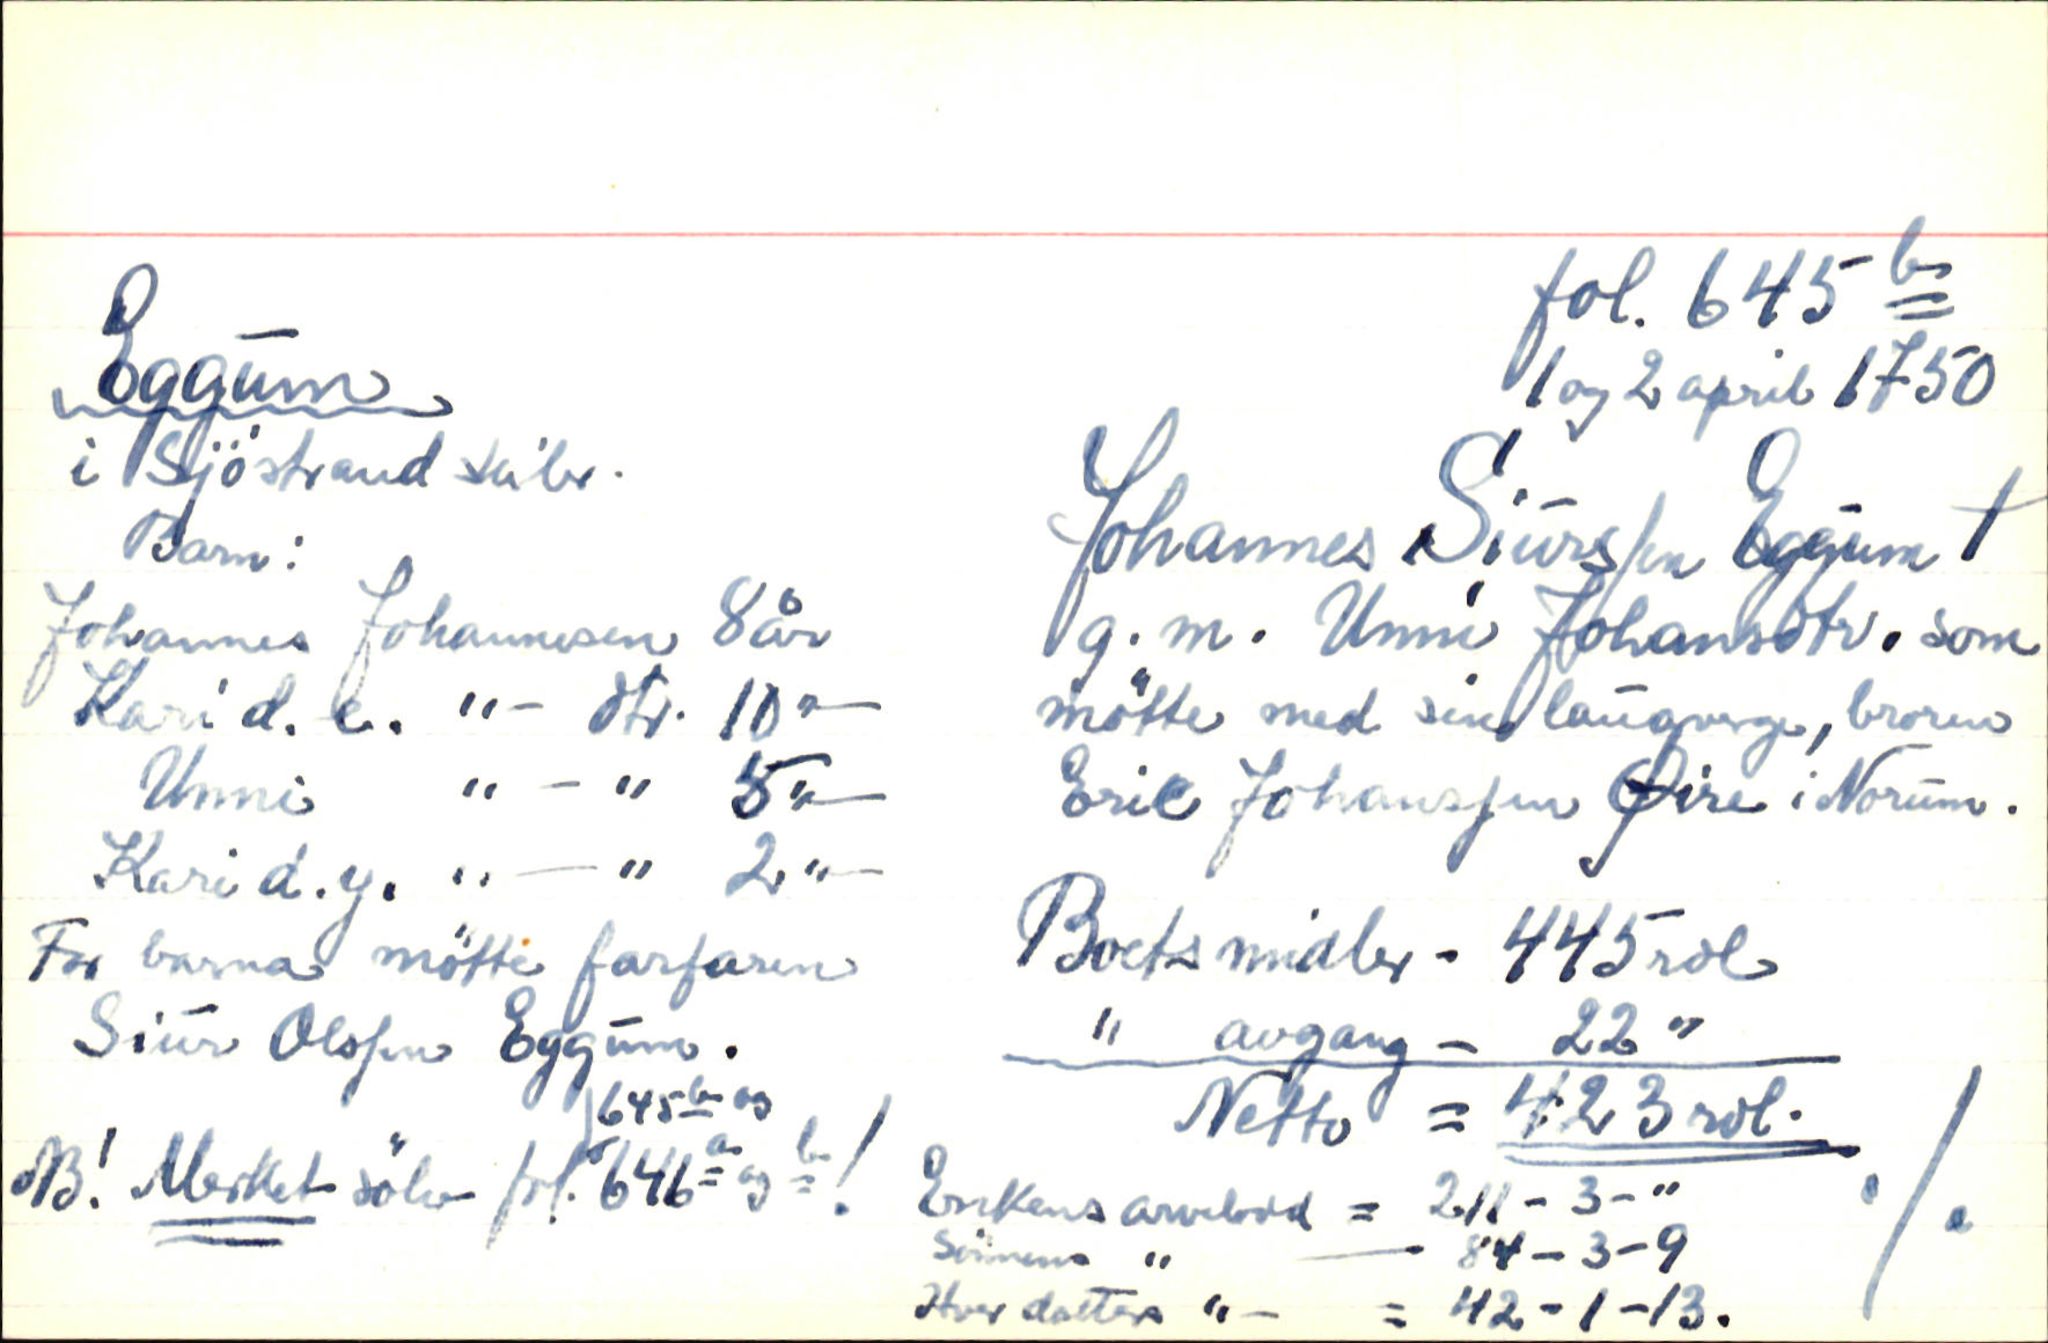 fol. 645 b
1 og 2 april 1750
Eggum
i Sjöstrand skibr.
Barn:
Johannes Johannesen 8 år
Kari d. e. "- dtr. 10 "-
Unni " - " 5 "-
Kari d. y. " - " 2 "-
For barna mötte farfaren
Siur Olssen Eggum.
645 b og
NB! Merket sölv fol. 646 a og b!
Johannes Siurssen Eggum †
g. m. Unni Johansdtr. som
mötte med sin laugverge, broren
Eric Johanssen Øire i Norum.
Boets midler - 445 rdl
" avgang - 22 "
Netto = 423 rdl.
Enkens arvelodd = 211 - 3 - "
Sönnens " — 84 - 3 - 9
Hver datters " - = 42 - 1 - 13.
./.